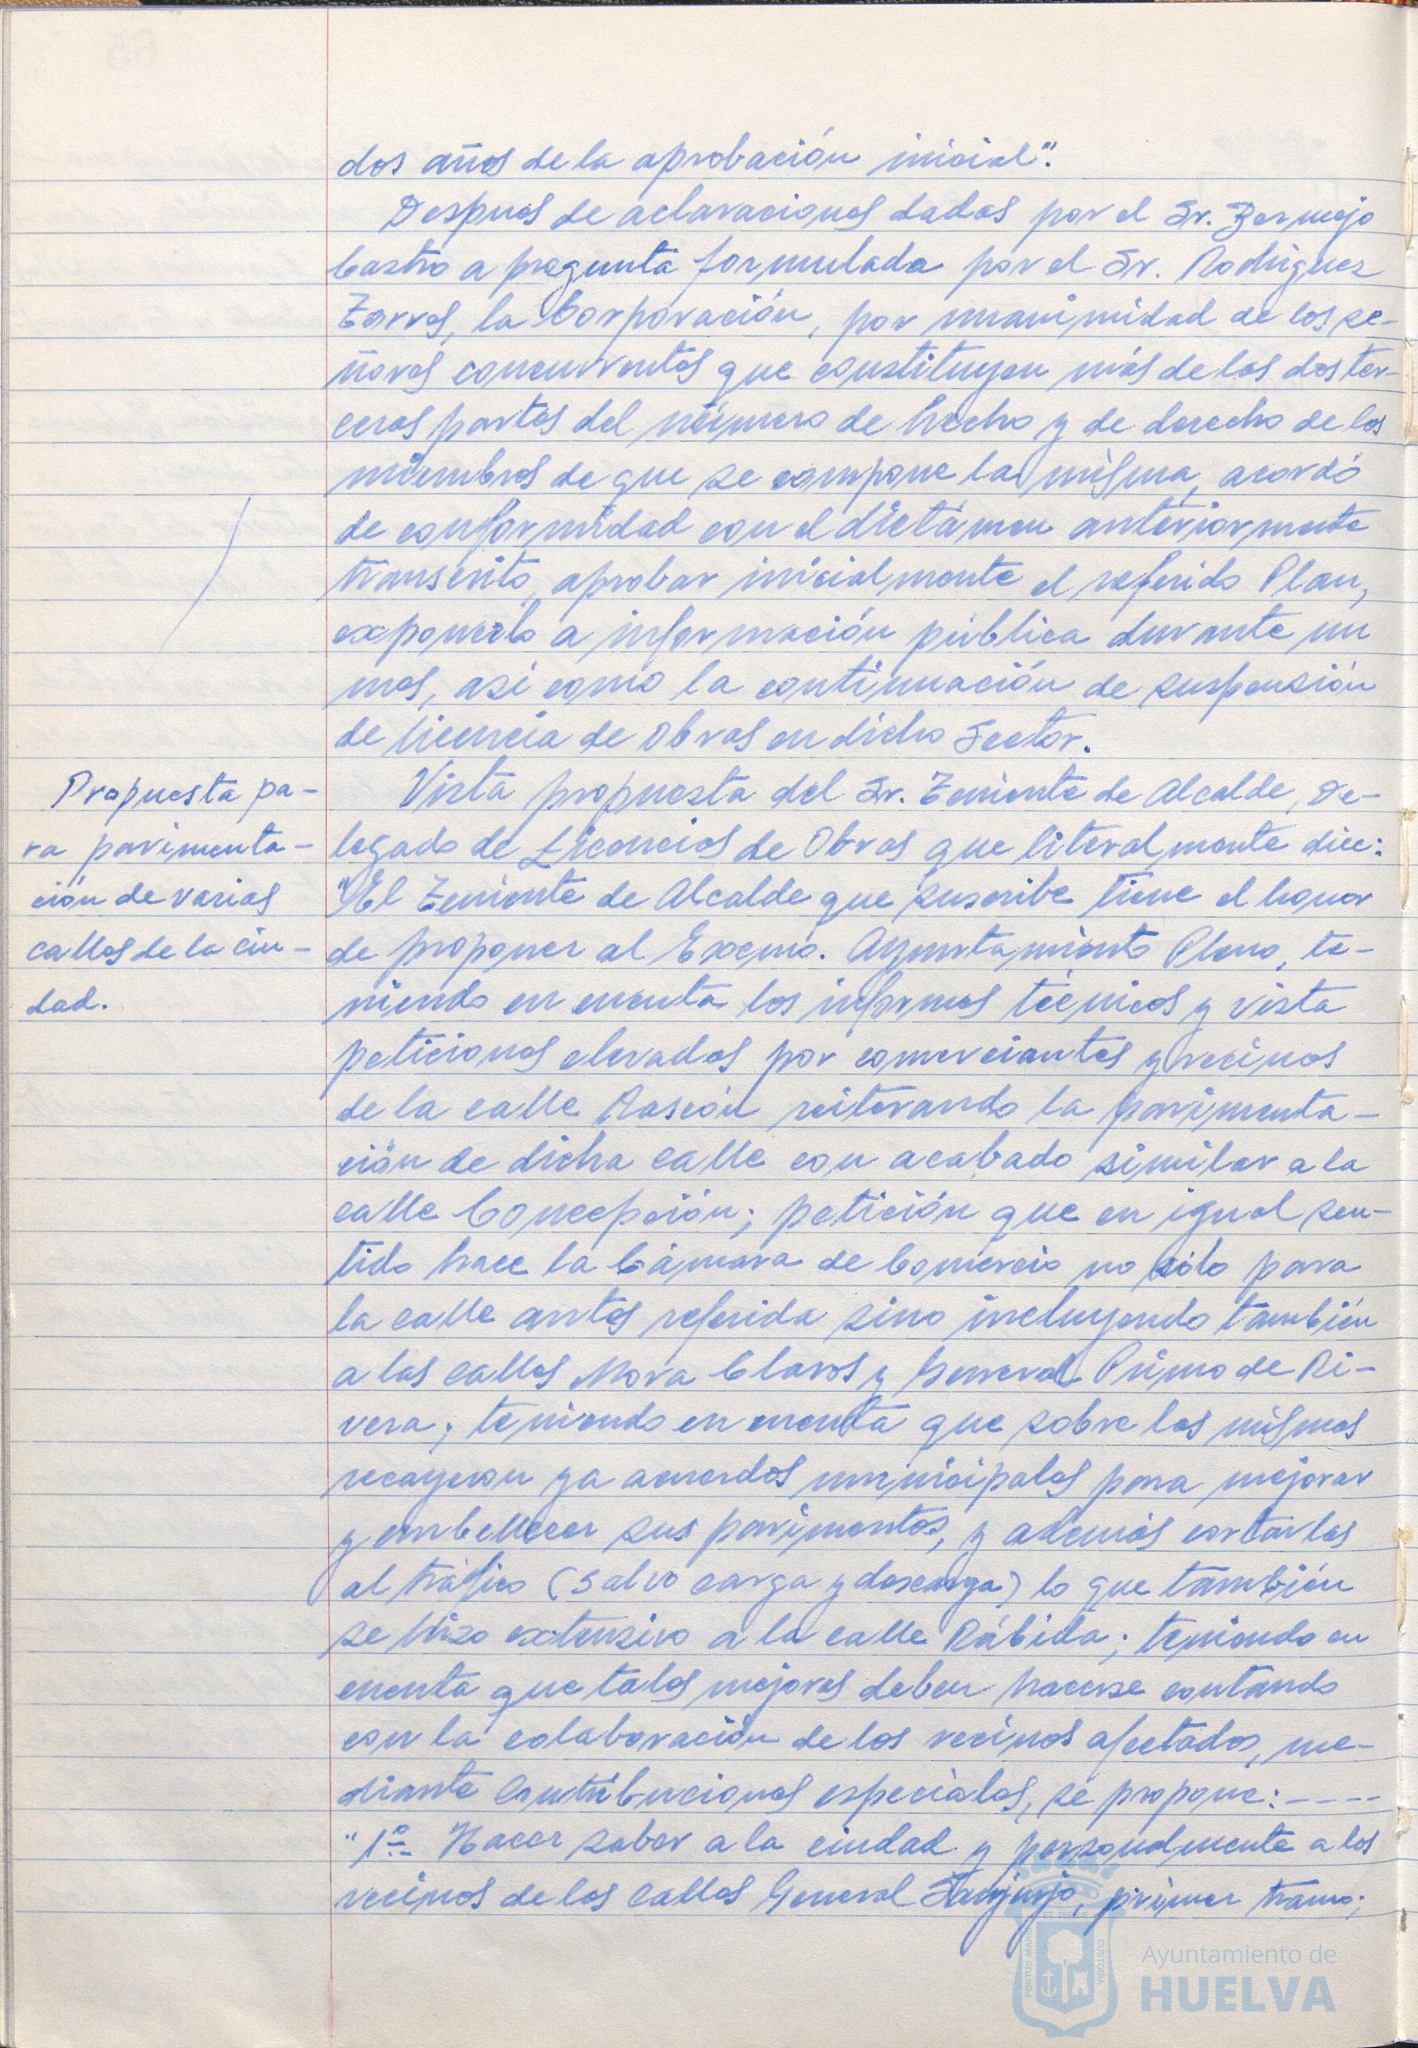 dos años de la aprobación inicial".
Despues de aclaraciones dadas por el Sr. Bermejo
Castro a pregunta formulada por el Sr. Rodriguez
Torres, la Corporación, por unanimidad de los se-
ñores concurrentes que constituyen más de las dos ter-
ceras partes del número de hecho y de derecho de los
miembros de que se compone la misma, acordó
de conformidad con el dictámen anteriormente
transcrito, aprobar inicialmente el referido Plan,
exponerlo a información pública durante un
mes, así como la continuación de suspensión
de licencia de Obras en dicho Sector.
Propuesta pa-
ra pavimenta-
ción de varias
calles de la ciu-
dad.
Vista propuesta del Sr. Teniente de Alcalde, De-
legado de Licencias de Obras que literalmente dice:
"El Teniente de Alcalde que suscribe tiene el honor
de proponer al Excmo. Ayuntamiento Pleno, te-
niendo en cuenta los informes técnicos y vista
peticiones elevadas por comerciantes y vecinos
de la calle Rascón reiterando la pavimenta-
ción de dicha calle con acabado similar a la
calle Concepción; petición que en igual sen-
tido hace la Cámara de Comercio no sólo para
la calle antes referida sino incluyendo también
a las calles Mora Claros y General Primo de Ri-
vera; teniendo en cuenta que sobre las mismas
recayeron ya acuerdos municipales para mejorar
y embellecer sus pavimentos, y además cortarlas
al tráfico (salvo carga y descarga) lo que también
se hizo extensivo a la calle Rábida; teniendo en
cuenta que tales mejoras deben hacerse contando
con la colaboración de los vecinos afectados, me-
diante Contribuciones especiales, se propone: ----
"1º- Hacer saber a la ciudad y personalmente a los
vecinos de las calles General Sanjurjo, primer tramo;
PORTUS MARIS
CUSTODIA
Ayuntamiento de
HUELVA